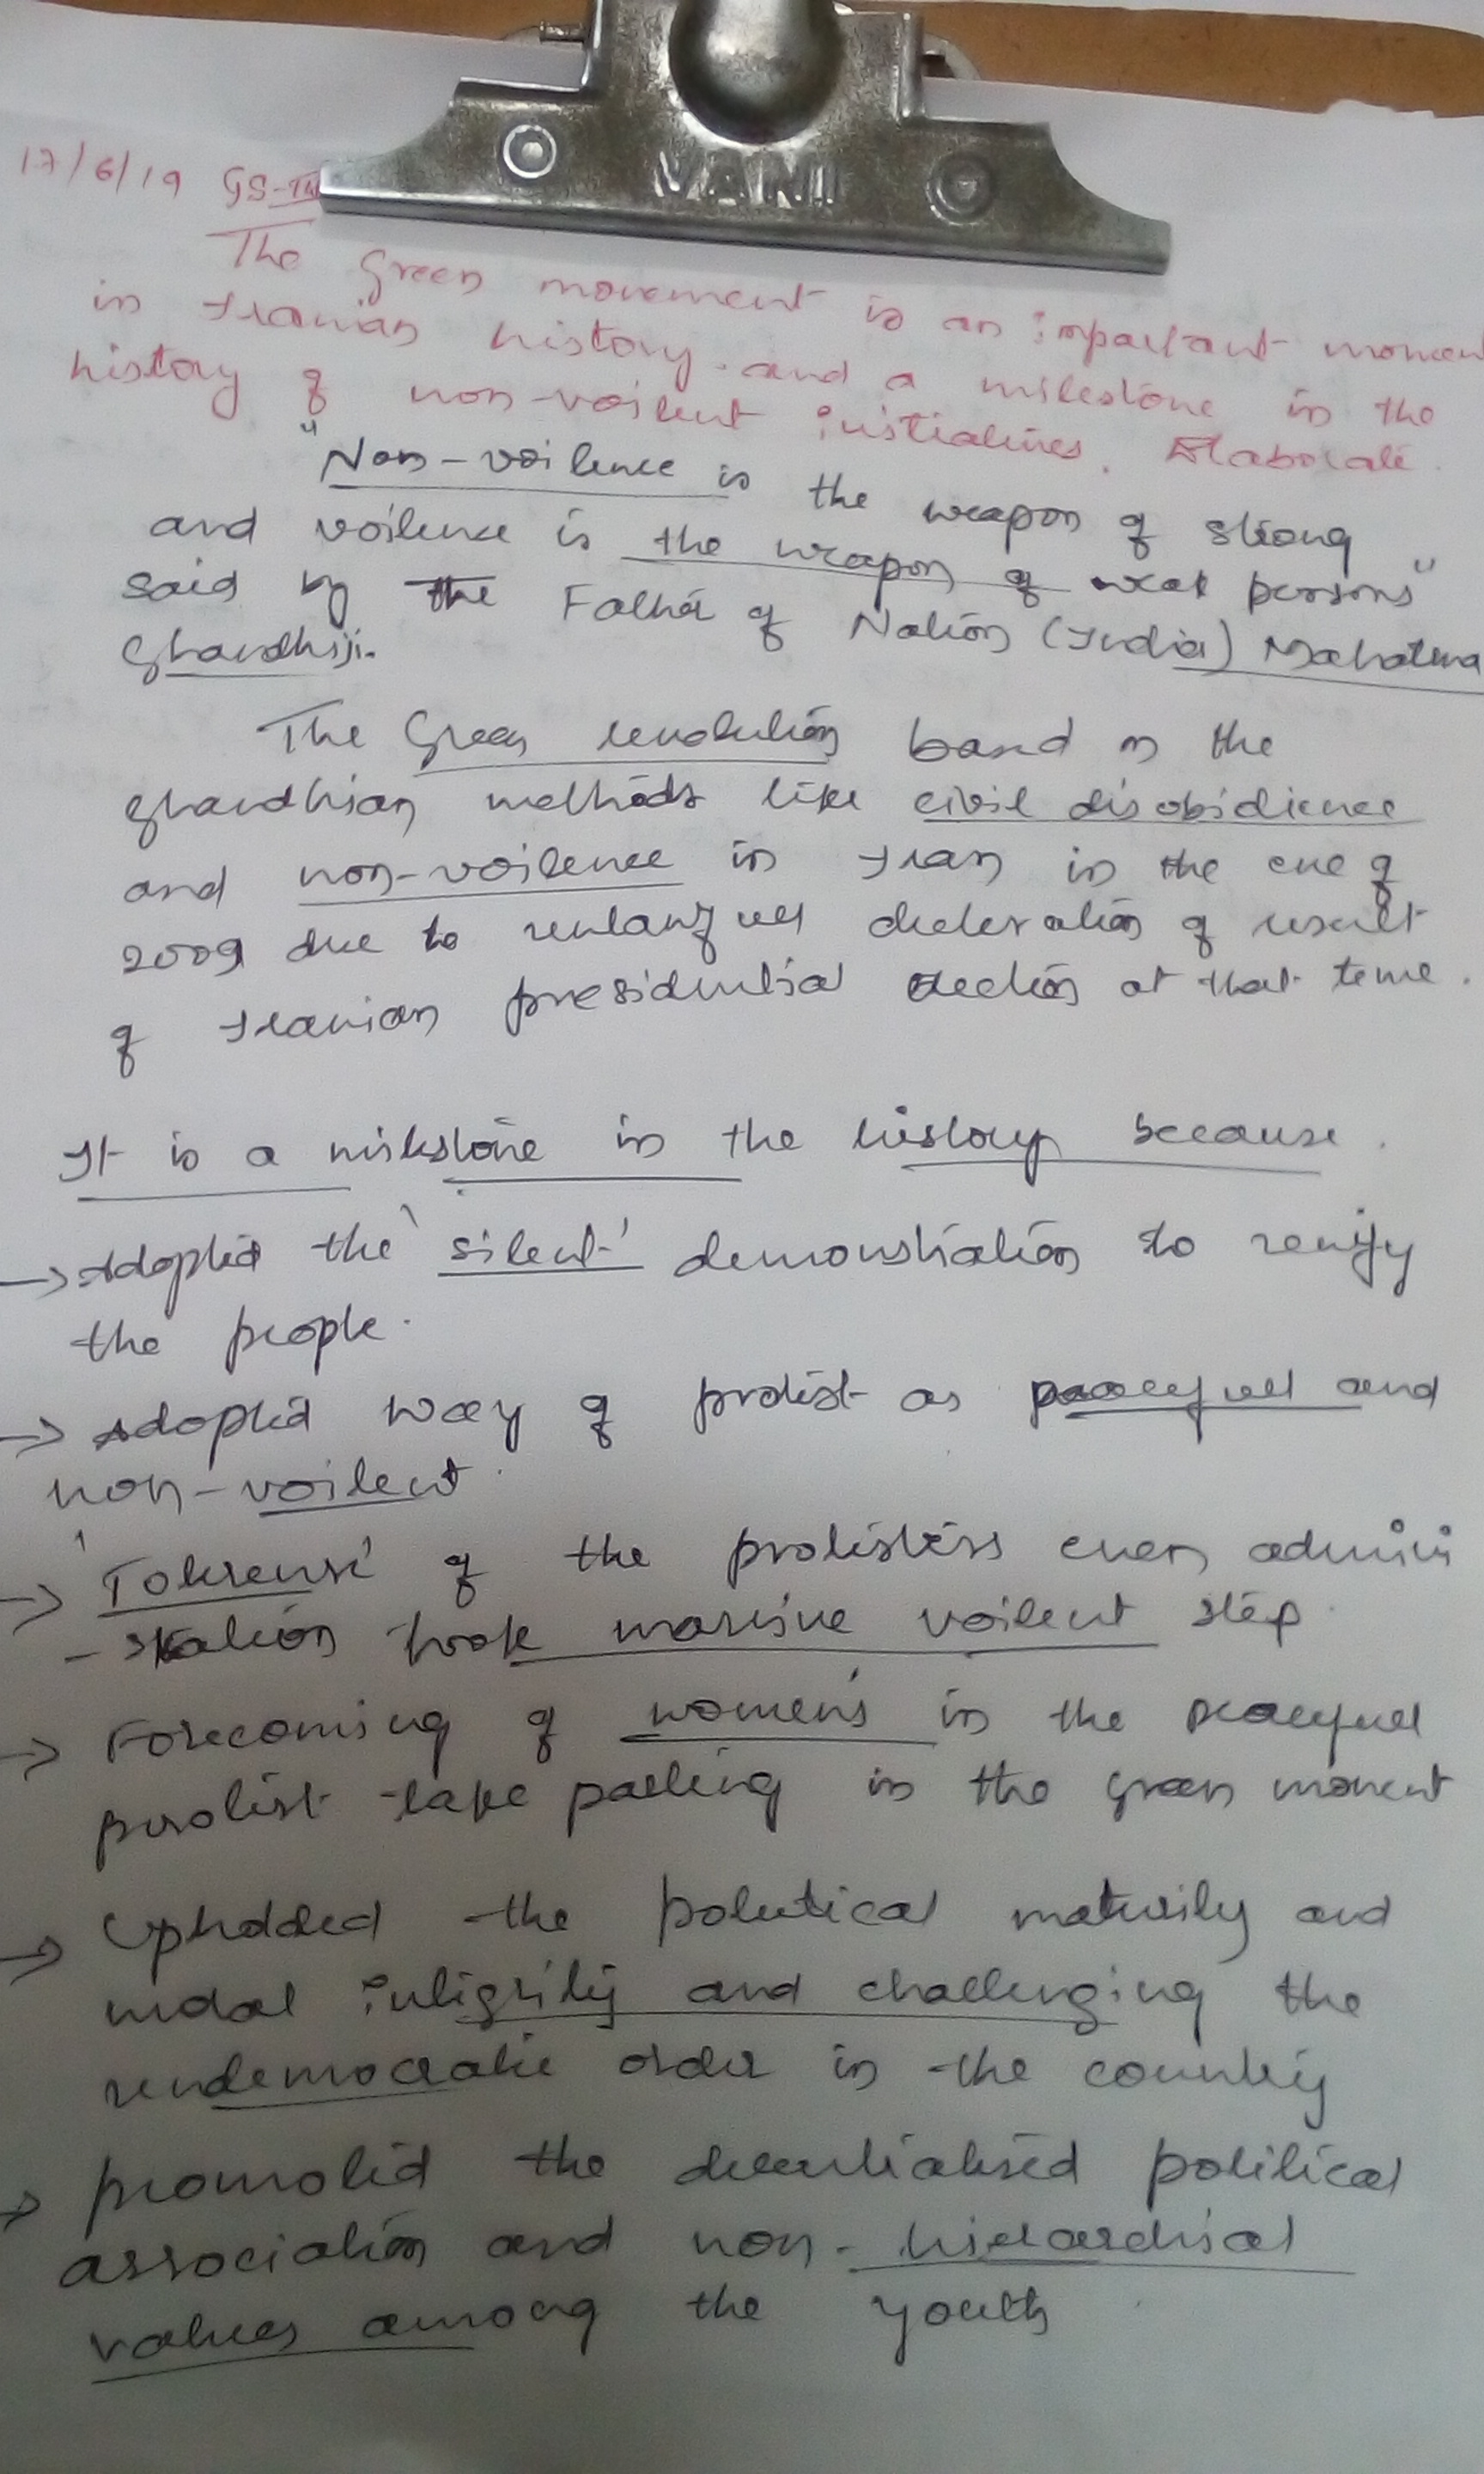 VANI
17/6/19 GS-
The Green movement is an important momen
in Iranian history and a milestone in the
history of non-voilent initiatives. Elaborate.
"Non-voilence is the weapon of strong
and voilence is the weapon of weak persons"
said by the Father of Nation (India) Mahatma
Ghandhiji.
The Green revolution based on the
ghandhian methods like civil disobidience
and non-voilence in Iran in the eve of
2009 due to unlawfull decleration of result
of Iranian presidential election at that time.
It is a milestone in the history because.
→ Adopted the 'silent' demonstration to
the people.
→ Adopted way of protest as peacefull and
non-voilent.
→ 'Tolerense' of the protesters even admini
-stration took massive voilent step.
→ Forecoming of women's in the peacefull
protest take parting in the green moment
→ Upholded the political maturity and
moral intigrity and challenging the
undemocratic order in the country
→ promoted the decentralised political
association and non-hierarchial
values among the youth